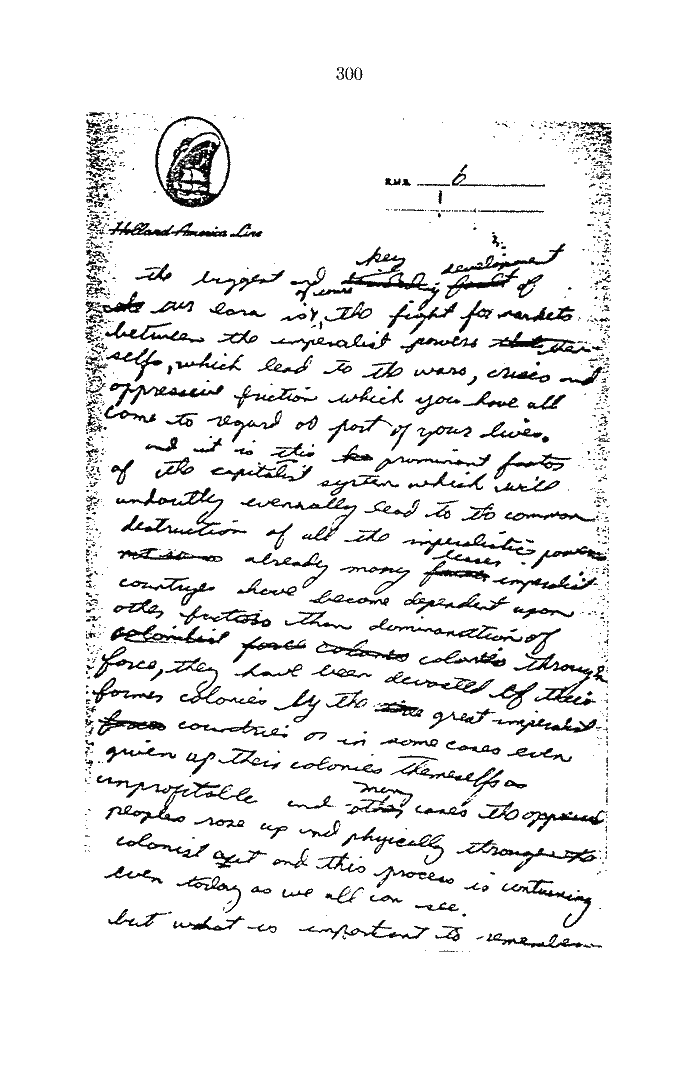 300
R.M.S. 6
Holland-America Line
key development
the biggest and of
of course
our eara is, the fight for markets
between the imperalist powers them-
selfs, which lead to the wars, crisis and
oppressive friction which you have all
come to regard as part of your lives.
and it is this prominant factos
of the capitalist system which will
undoutly evenually lead to the common
destruction of all the imperalistic powers
lesser
already many imperalist
countryes have become dependent upon
other factoss than dominanation of
colonies through
force, they have been devocted of their
former colonies by the great imperalist
countries or in some cases even
guien up their colonies themselfs as
many
unprofitable and cases the oppressed
peoples rose up and phyically through the
colonist out and this process is contunuing
even today as we all can see.
but what is important to remember